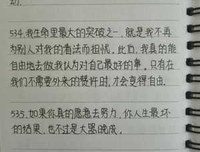 534.我生命里最大的突破之一,就是我不再
为别人对我的看法而担忧。此后,我真的能
自由地去做我认为对自己最好的事。只有在
我们不需要外来的赞许时,才会变得自由。
535.如果你真的愿意去努力,你人生最坏
的结果,也不过是大器晚成。